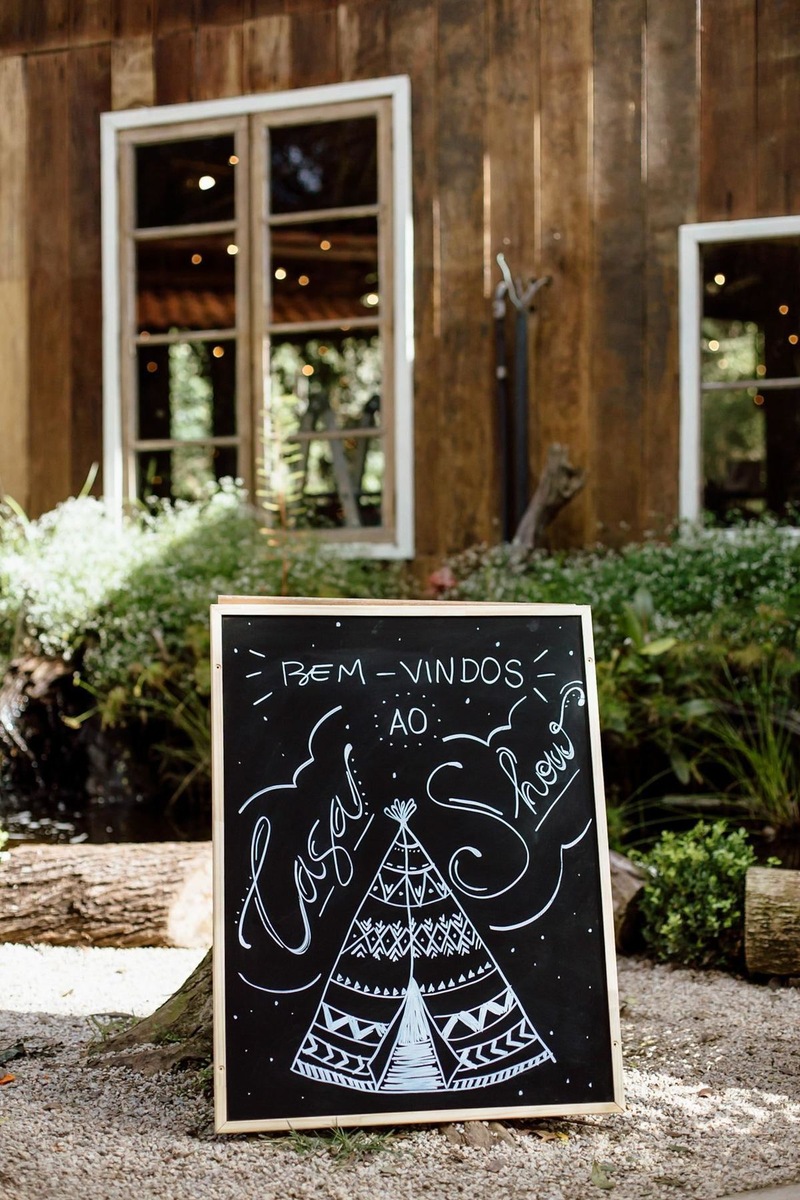 BEM-VINDOS
AO
Casar Show